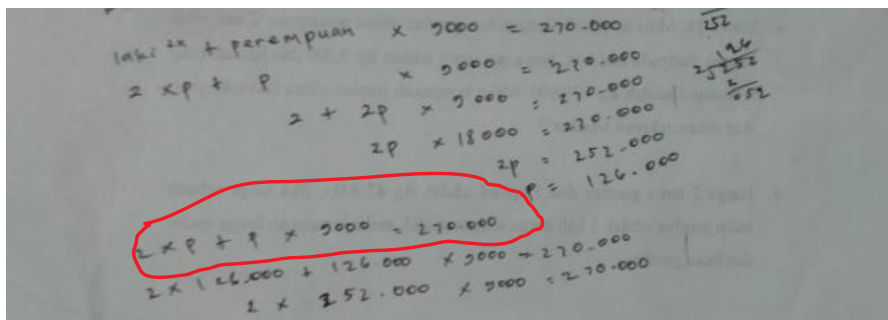 laki 2x + perempuan x 9000 = 270.000
2 x p + p x 9000 = 270.000
2 + 2p x 9000 = 270.000
2p x 18000 = 270.000
2p = 252.000
p = 126.000
2 x p + p x 9000 = 270.000
2 x 126.000 + 126.000 x 9000 = 270.000
2 x 252.000 x 9000 = 270.000
252
126
2 252
2
052